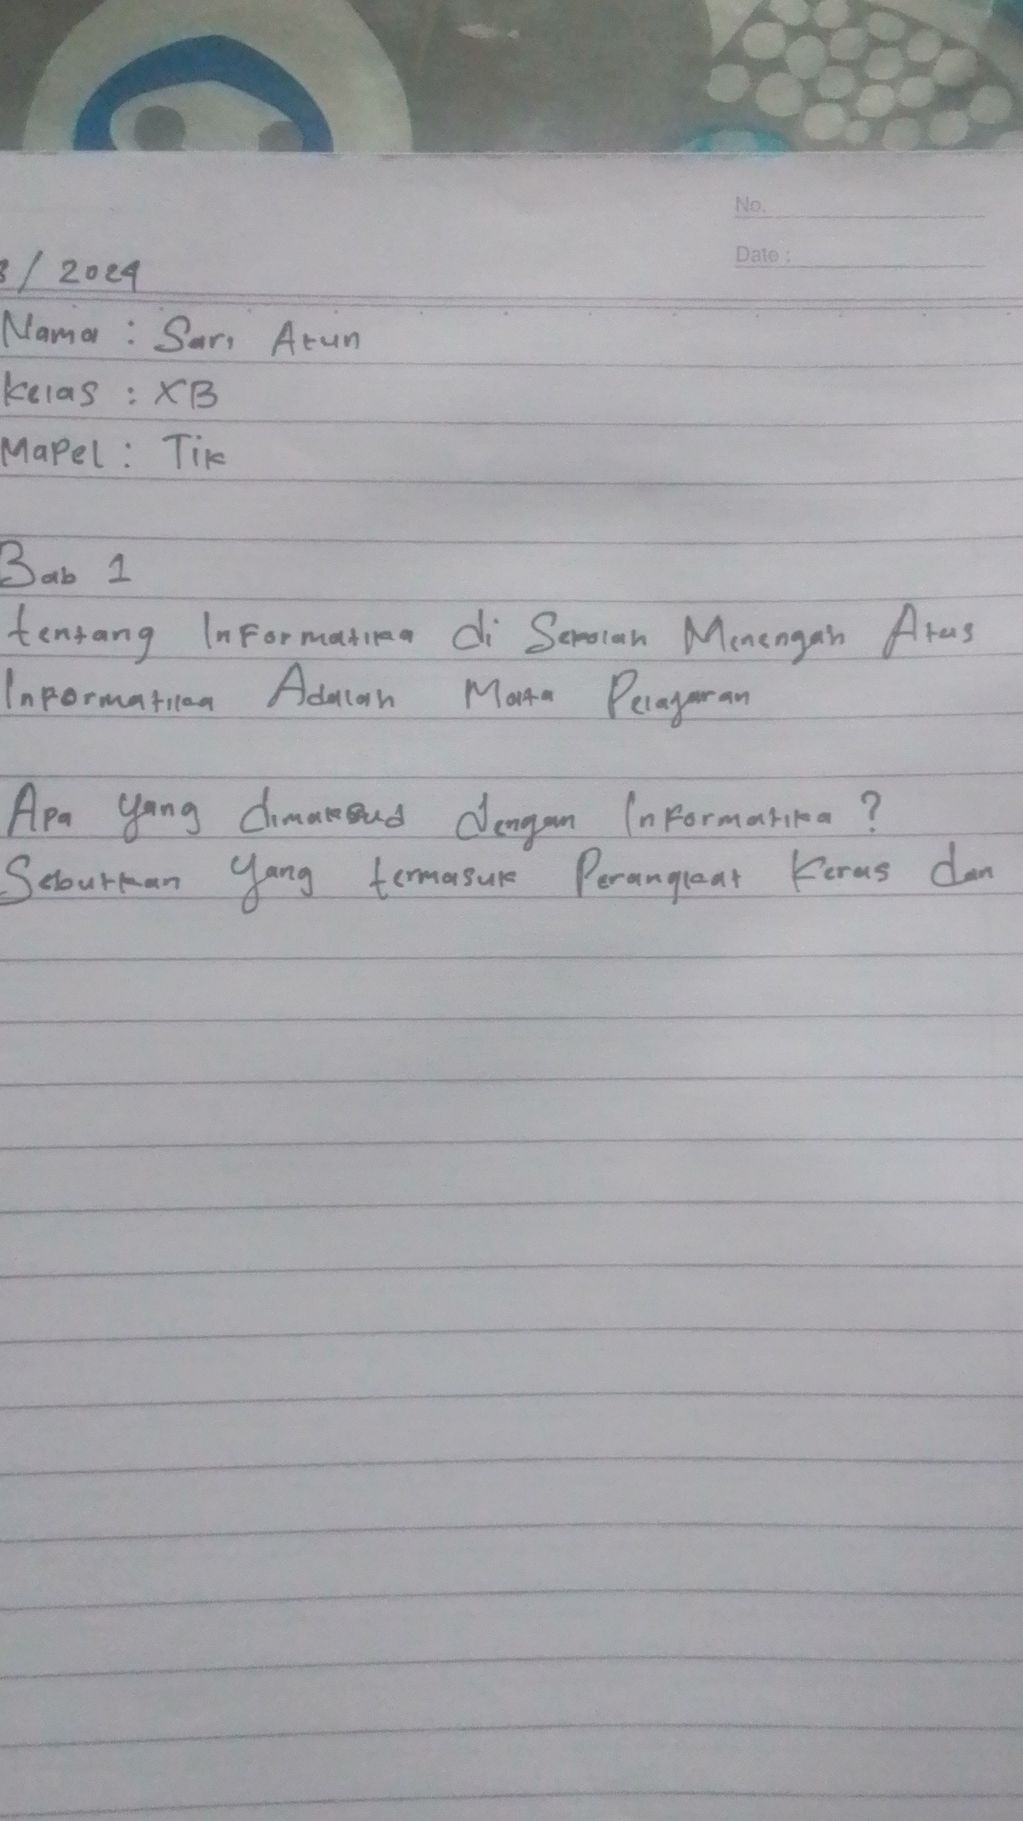 No.
Date :
3/2024
Nama : Sari Atun
Kelas : XB
Mapel : Tik
Bab 1
tentang Informatika di Sekolah Menengah Atas
Informatika Adalah Mata Pelajaran
Apa yang dimaksud dengan Informatika ?
Sebutkan yang termasuk Perangkat Keras dan